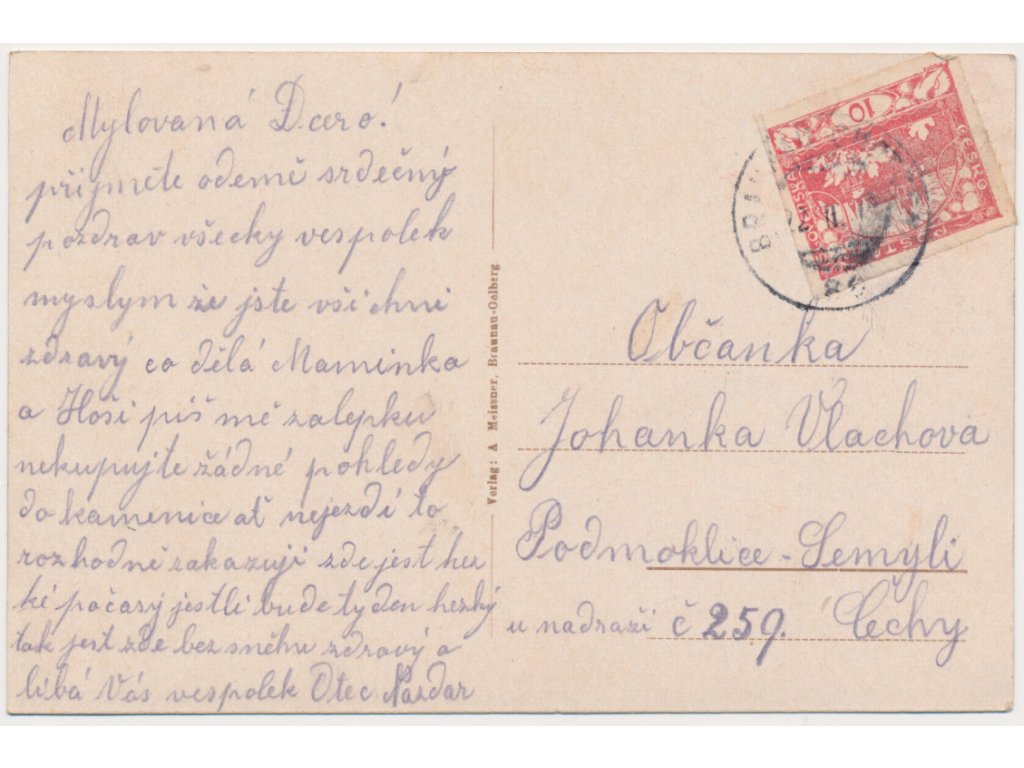 Mylovaná Daro!
přijměte odemě srdečný
pozdrav všecky vespolek
myslym že jste všichni
zdravý co dělá Maminka
a Hoši piš mě zalepku
nekupujte žádné pohledy
do kamenice ať nejezdí to
rozhodně zakazuji zde jest hez
ké počasý jestli bude tyden hezký
tak jest zde bez sněhu zdravý a
líbá Vás vespolek Otec Nazdar
Verlag: A Meissner, Braunau-Oelberg.
10
ČESKO
POŠTA
BRA
Občanka
Johanka Vlachova
Podmoklice - Semyli
u nadraží č 259. Čechy